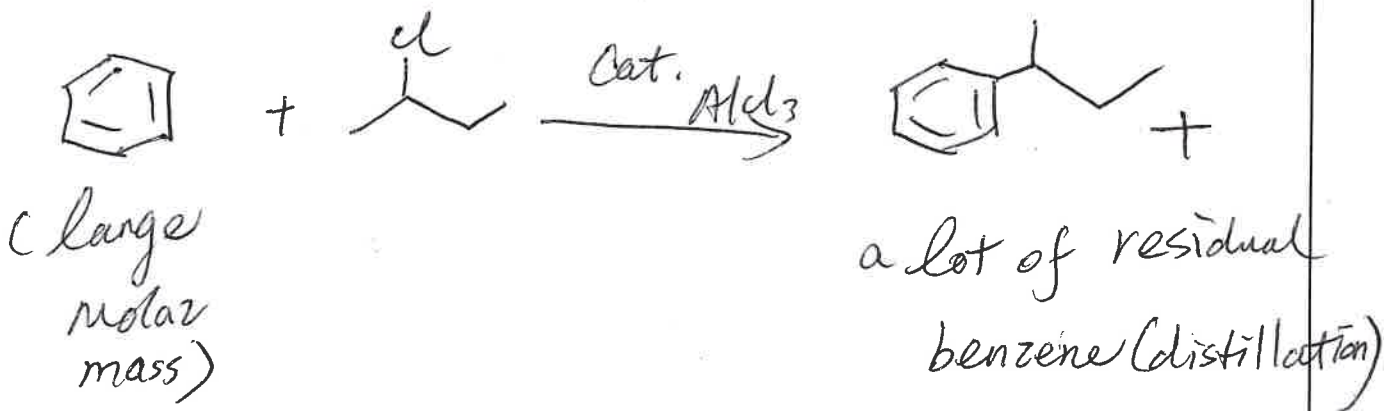 Cl
+
Cat.
AlCl3
+
( large
molar
mass)
a lot of residual
benzene (distillation)